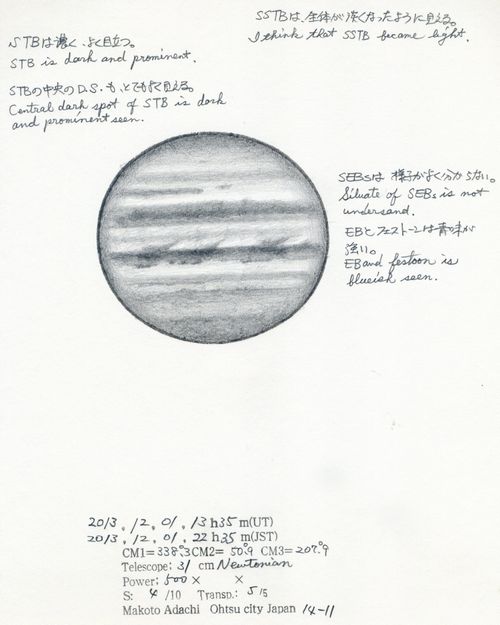 SSTBは、全体が淡くなったように見える。
I think that SSTB became light.
STBは濃く、よく目立つ。
STB is dark and prominent.
STBの中央のD.S.も、とてもよく見える。
Central dark spot of STB is dark
and prominent seen.
SEBsは 様子がよく分からない。
Siluate of SEBs is not
undersand.
EBとフェストーンは青味が
強い。
EB and festoon is
blueish seen.
2013, 12, 01, 13 h 35 m(UT)
2013, 12, 01, 22 h 35 m(JST)
CM1= 338.°3 CM2= 50.°9 CM3= 207.°9
Telescope; 31 cm Newtonian
Power; 500 × ×
S: 4 /10 Transp.: 5 /5
Makoto Adachi Ohtsu city Japan 14-11